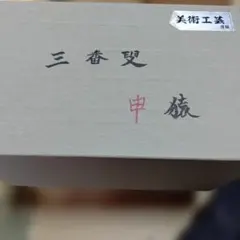 美術工芸
三番叟
申 猿